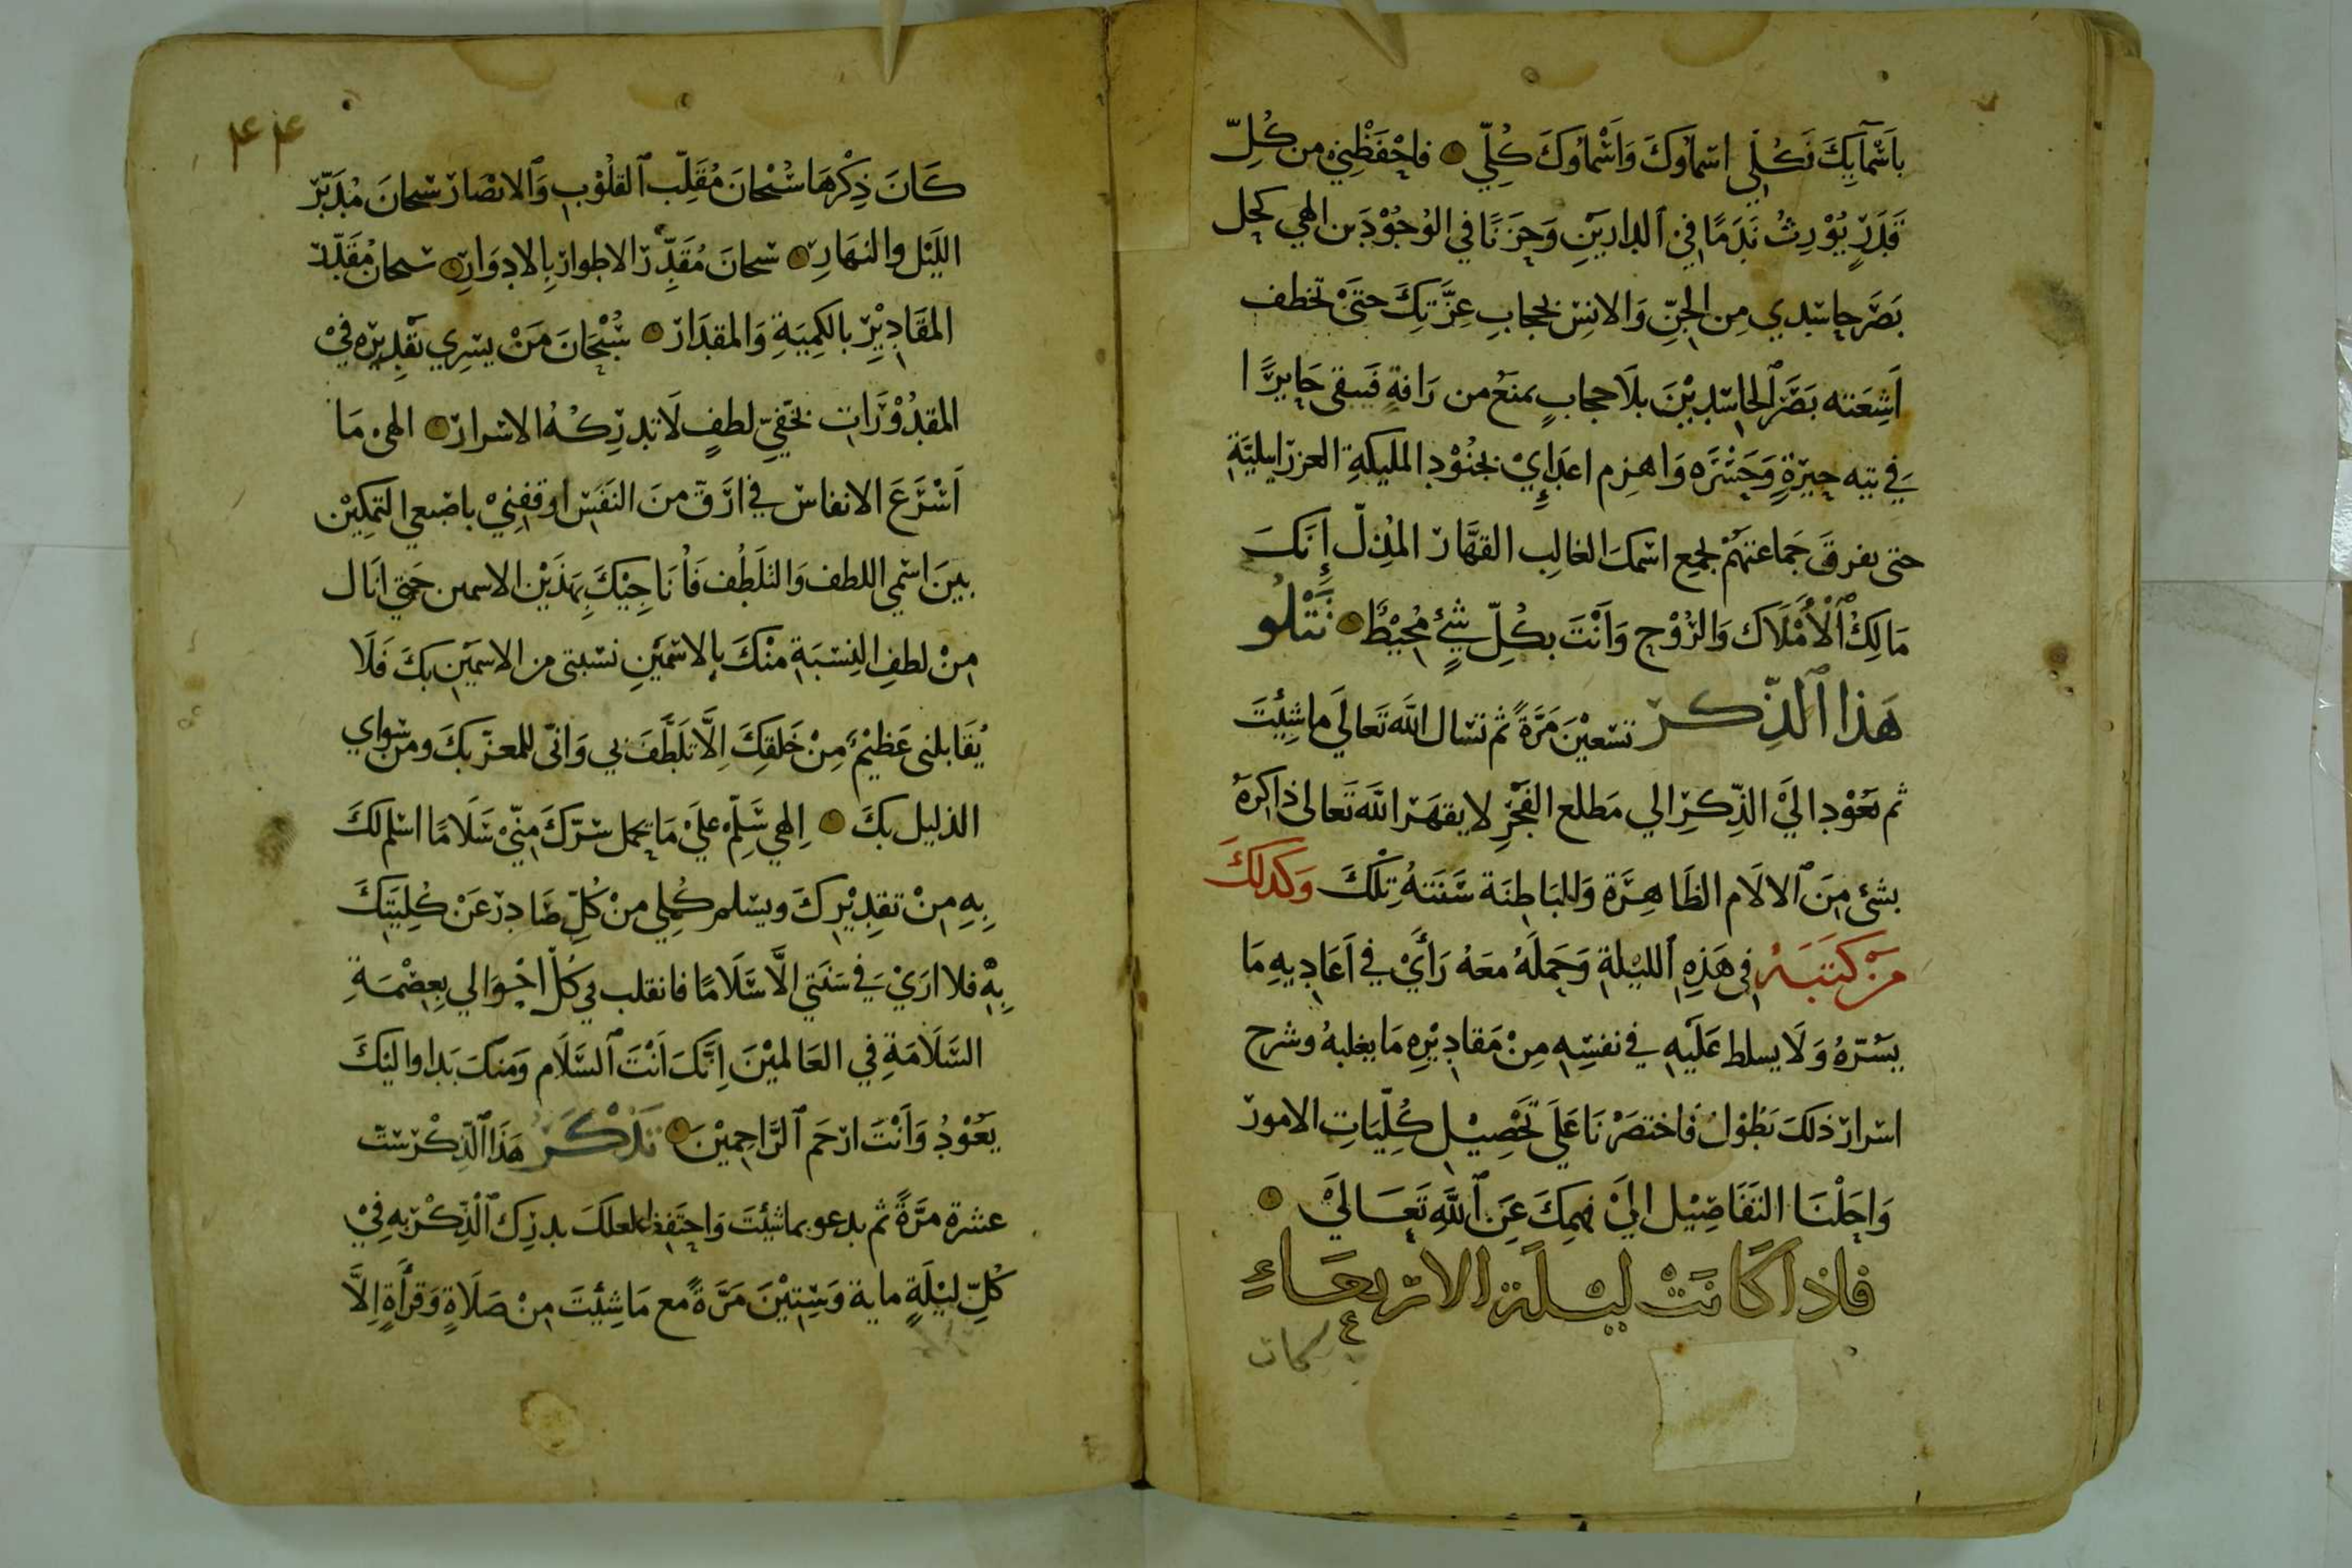 بِاَسْمَآيِكَ فَكُلِّي اسْمَاوكَ وَاَسْمَاوُكَ كُلِّي فاحْفَظْنِي من كُلِّ
قَدَرٍ يُوْرِثُ نَدَمًا فِيْ الدارَيْنِ وَحَزَنًا في الوُجُوْدَين الهِي كحل
بَصَرَ حاسدي مِن الجِنِّ وَالانِسِ بحجابِ عِزَّتِكَ حتىَ تخطف
اَشِعَته بَصَرَ الحاسِدِيْنَ بلَا حجابٍ يمنَعُ من رَافةٍ فَيبقى حَايِرًا
في تيه حِيْرَةٍ وَحَسْرَه وَاهزم اعدَايِيْ بجنُوْدِ المليكةِ العزرَاييليَّةِ
حتى يفرقَ جَماعتهُمْ لجمِع اسْمِكَ الغالِب القَهَّار المُذِلّ إنَكَ
مَالِكُ اَلْأَمْلَاك وَالرُوْحِ وَاَنْتَ بِكُلِّ شَيْءٍ مُحِيْطٌ تَتْلُو
هَذا اَلذِّكر تسْعِيْنَ مَرَّةً ثم تسَال اللَّه تَعاليَ ما شِئِتَ
ثم تَعُوْد اليَ الذِّكرِ الي مَطلع الفَجْرِ لا يقهَر اللَّه تَعالى ذاكِرَهُ
بشئ مِنَ الالَام الظَاهِرَة وَالبَاطِنَة سَنَتهُ تِلْكَ وَكذلكَ
مَنْ كتبَهُ في هَذِهِ الليْلةِ وَحَمَلَهُ معَهُ رَأَيْ فِي اَعَادِيهِ مَا
يَسُرّهُ وَلَا يسلط عَلَيهِ في نفسِهِ مِنْ مَقادِيْرِهِ مَا يغلبهُ وشرح
اسْرار ذلكَ يَطُوْلُ فَاختصَرْنَا عَلَي تَحْصِيْل كُلِّيَاتِ الامور
وَاَحَلْنَا التَفَاصِيْل الَيَ فهمِكَ عَنِ اَللَّهِ تَعَاليَ
فاذا كَانَتْ ليْلَة الارْبعَاءِ
كات
٤٤
كَانَ ذِكْرهَا سُبْحَانَ مُقَلِّب اَلقلُوْبِ وَالابْصَار سبحانَ مُدَبِّر
اللَيْل والنهَارِ سبحانَ مُقَدِّر الاطوار بِالادوَارِ سبحان مُقَدِّر
المقَادِيْرِ بالكَمِيَةِ وَالمقدَار سُبْحَانَ مَنْ يسْرِي تقْدِيْرِه فيْ
المقدُوْرَات بخَفِيّ لطفٍ لَا تدرِكهُ الاسْرار الهيْ مَا
اَسْرَعَ الانفاس في ارَقّ منَ النَفَسِ اوقفنِيْ باصْبعي التمكِيْن
بينَ اسْمي اللطف وَالتلَطُف فَاُنَاجِيْكَ بِهَذَيْن الاسمين حَتى انَال
مِنْ لطفِ النِسْبَةِ منْكَ بالاسْمَيْنِ نسْبتى من الاسمَيْن بكَ فَلَا
يُقَابلنى عَظِيْمٌ مِنْ خَلقِكَ اِلَّا تَلَطَّفَ بي وَانى للمعزّ بكَ ومن سْواي
الذليل بكَ اِلهي سَلِّمْ عليَ مَا يحمل سَرّكَ مِنيّ سَلَامًا اسْلم لكَ
بِهِ مِنْ تقدِيْرِكَ ويسلم كُلِّي منْ كُلّ صَادر عَنْ كُلِيَتِكَ
بِهِ فلا ارَيْ في سَنَتي الَّا سَلَامًا فانقلب فِي كُلّ احْوَالي بِعِصْمَةِ
السَّلَامَةِ في العَالميْنَ اِنَّكَ اَنْتَ اَلسَّلَام وَمنكَ بَدا واليْكَ
يَعُوْدُ وَاَنْتَ ارحَم اَلرَّاحِمِيْنَ تَذْكُر هَذَا اَلذِّكْر ستّ
عشرة مرَّةً ثم يدعو بما شئتَ وَاحتَفِظ لعلكَ بدرك اَلْذِّكْر بِه فيْ
كُلّ ليْلَةٍ ماية وَسِتيْنَ مَرَّةً مع مَا شِئْتَ مِنْ صَلَاةٍ وَقرأةٍ اِلَّا